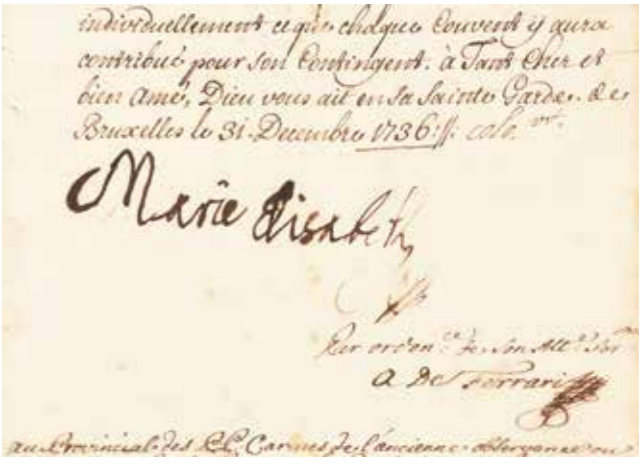 individuellement ce que chaque Couvent y aura
contribué pour son Contingent. à Tant Cher et
bien Amé, Dieu vous ait en sa Sainte Garde. de
Bruxelles le 31. Decembre 1736:
Marie Elisabeth
Par ordon.ce de son Alt.e
A De Ferrari
au Provincial des PP. Carmes de l'ancienne observance